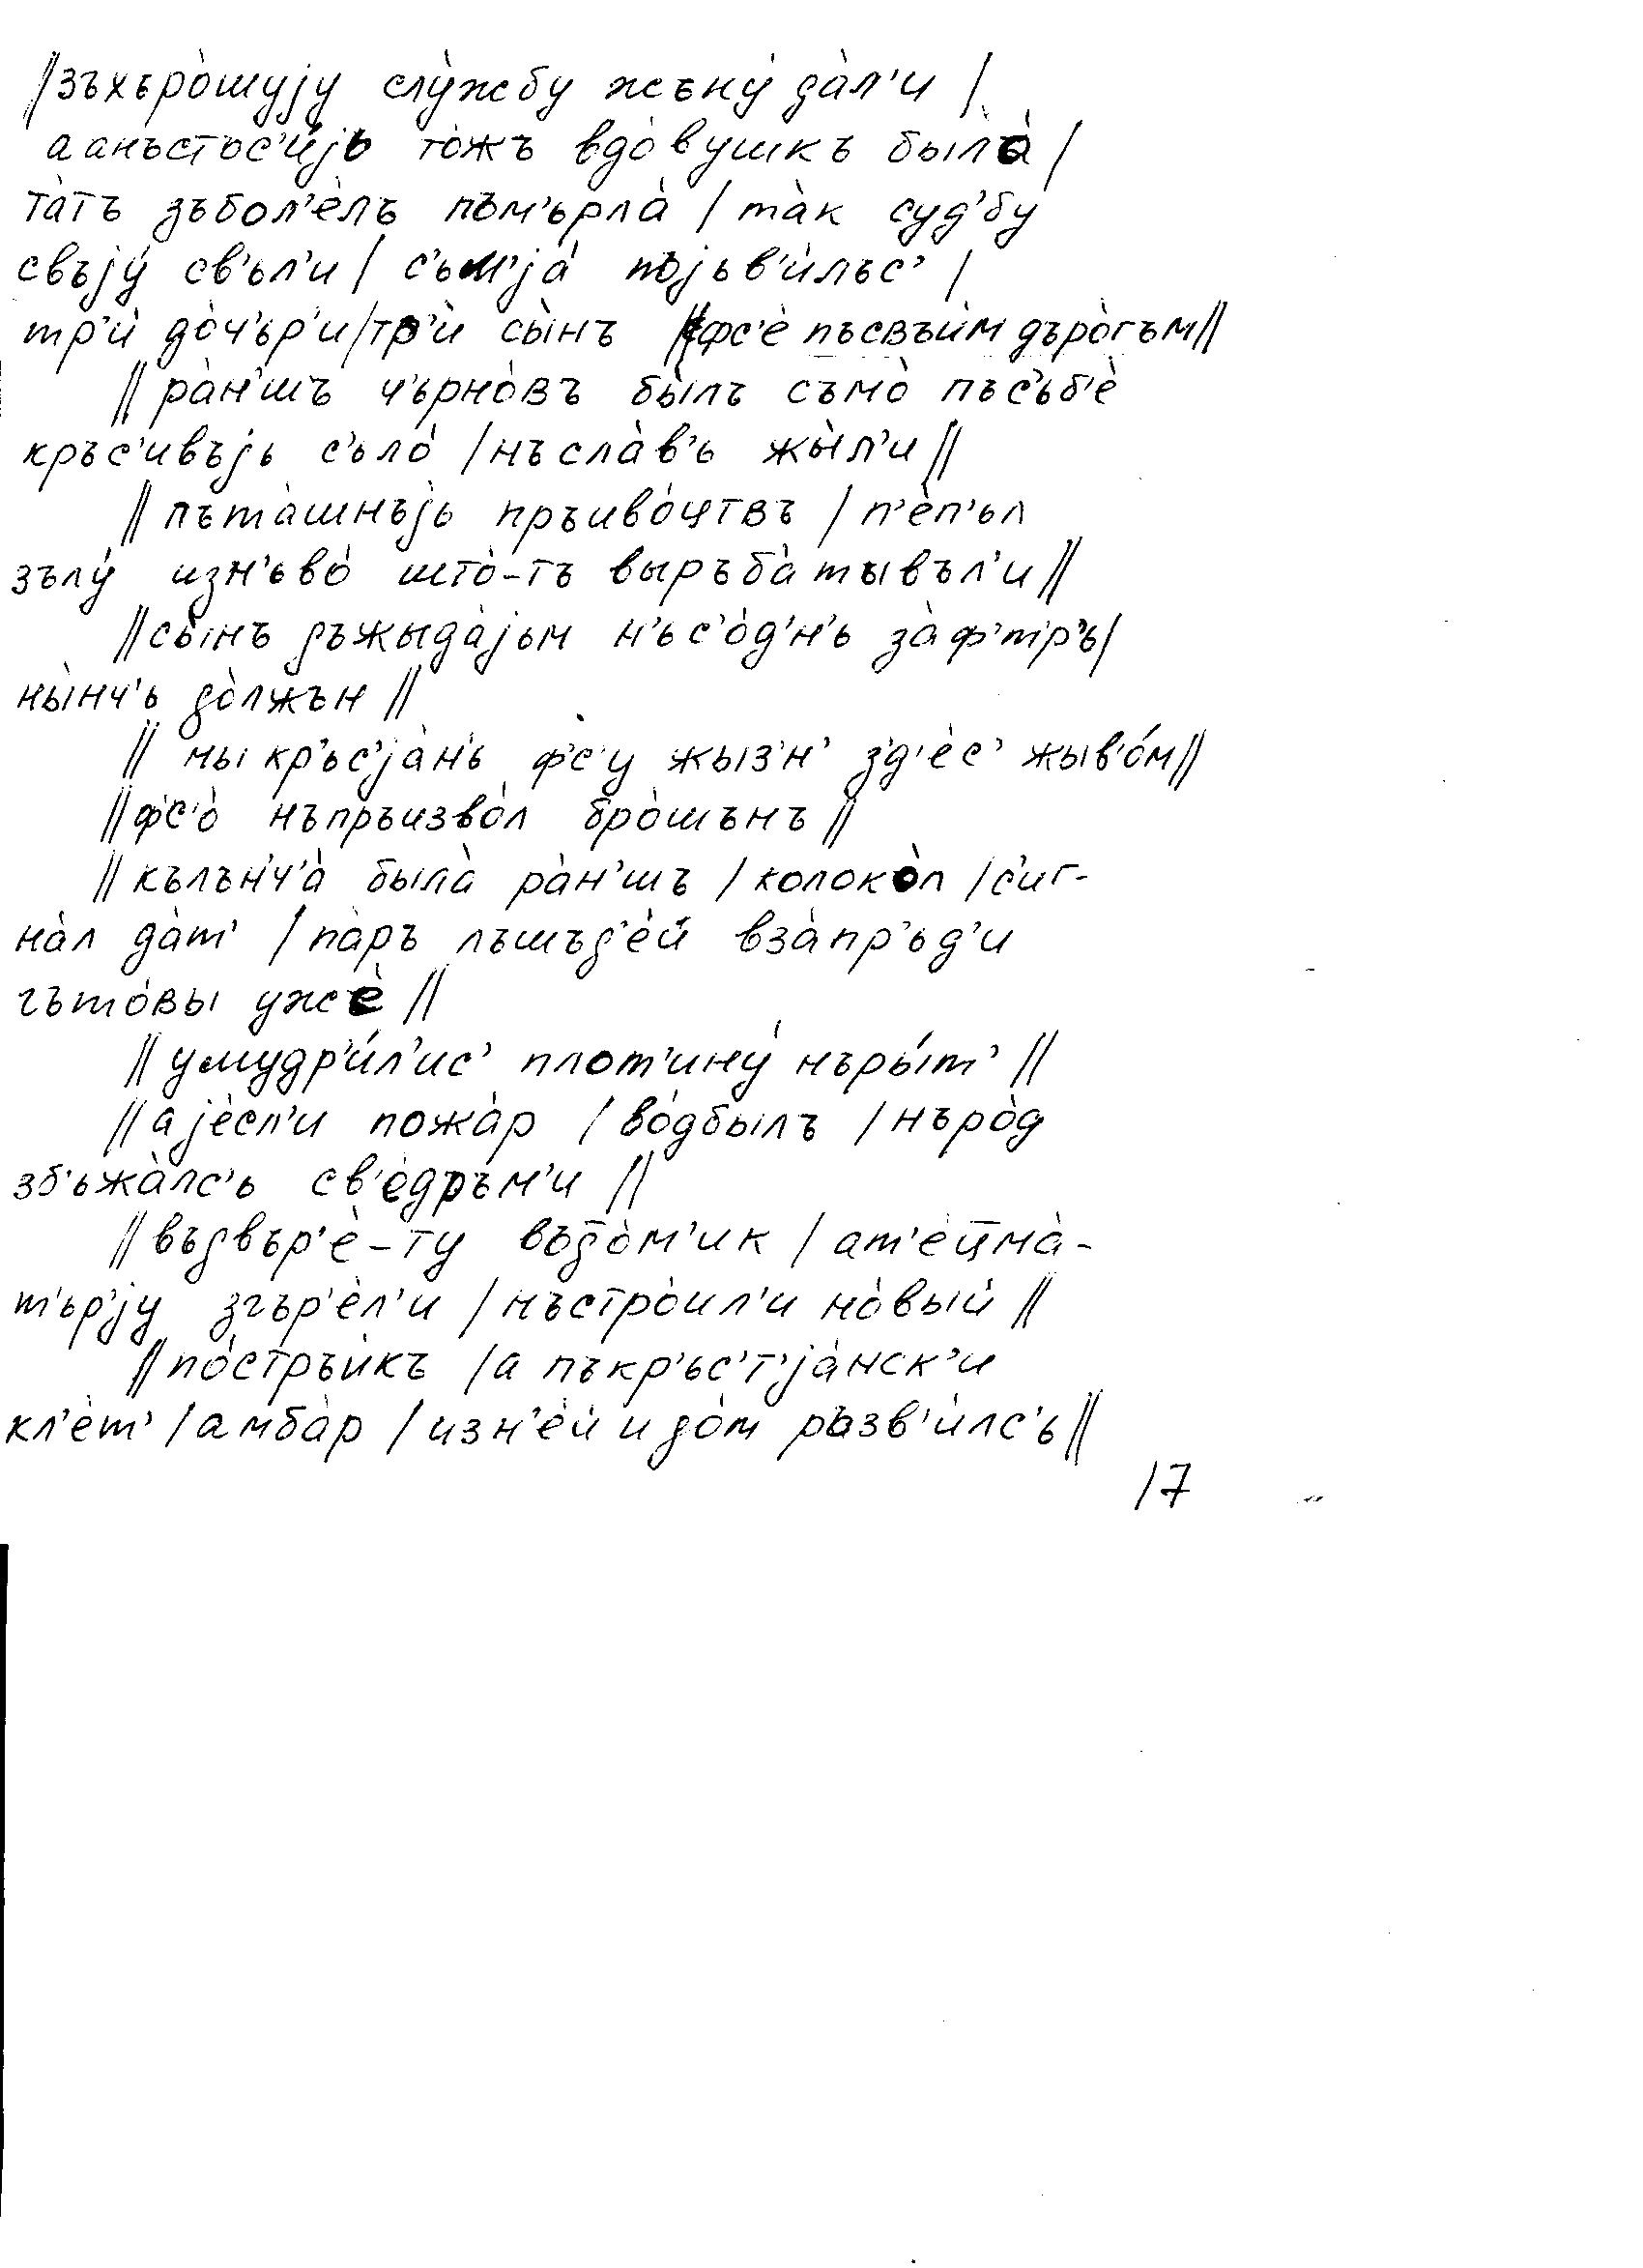 //зъхъро̀шују слу̀жбу жъну́ да̀л'и /
аанъстос'и́јь то̀жъ вдо̀вушкъ была̀ /
та̀тъ зъбол'ѐлъ пъм'ьрла̀ / та̀к суд'бу
свъју́ св'ьл'и / с'ьм'ја́ пъјьв'и́лъс' /
тр'ѝ до̀ч'ьр'и /тр'ѝ сы̀нъ //фс'ѐ пъсвъи́м дъро̀гъм//
// ра̀н'шъ ч'ьрно̀въ бы̀лъ съмо̀ пъс'ьб'ѐ
кръс'ивъјь с'ьло́ /нъсла̀в'ь жы̀л'и //
// пъта̀шнъјь пръиво́цтвъ / п'ѐп'ьл
зълу́ изн'ьво́ што̀-тъ выръба̀тывъл'и //
//сы̀нъ дъжыда̀јьм н'ьс'о̀д'н'ь за̀ф'тр'ъ/
ны̀нч'ь до̀лжън //
// мы кр'ьс'ја̀н'ь ф'с'у жыз'н' з'д'ѐс' жыв'о́м//
//ф'с'о̀ нъпръизво́л бро̀шънъ //
// кълън'ч'а̀ была̀ ра̀н'шъ / колоко̀л /с'иг-
на̀л да̀т' / па̀ръ лъшъд'ѐй вза̀пр'ьд'и
гъто́вы ужѐ //
// умудр'и́л'ис' плот'ину́ нъры́т' //
//ајѐсл'и пожа̀р / во́дбылъ / нъро̀д
зб'ьжа̀лс'ь св'ѐдръм'и //
//въдвър'ѐ-ту въдо̀м'ик / ат'ѐцма̀-
т'ьр'ју згър'ѐл'и / нъстро̀ил'и но̀вый //
//по́стръйкъ /а пъкр'ьс'т'ја́нск'и
кл'ѐт' /амба̀р / изн'ѐй и до̀м разв'и́лс'ь//
17